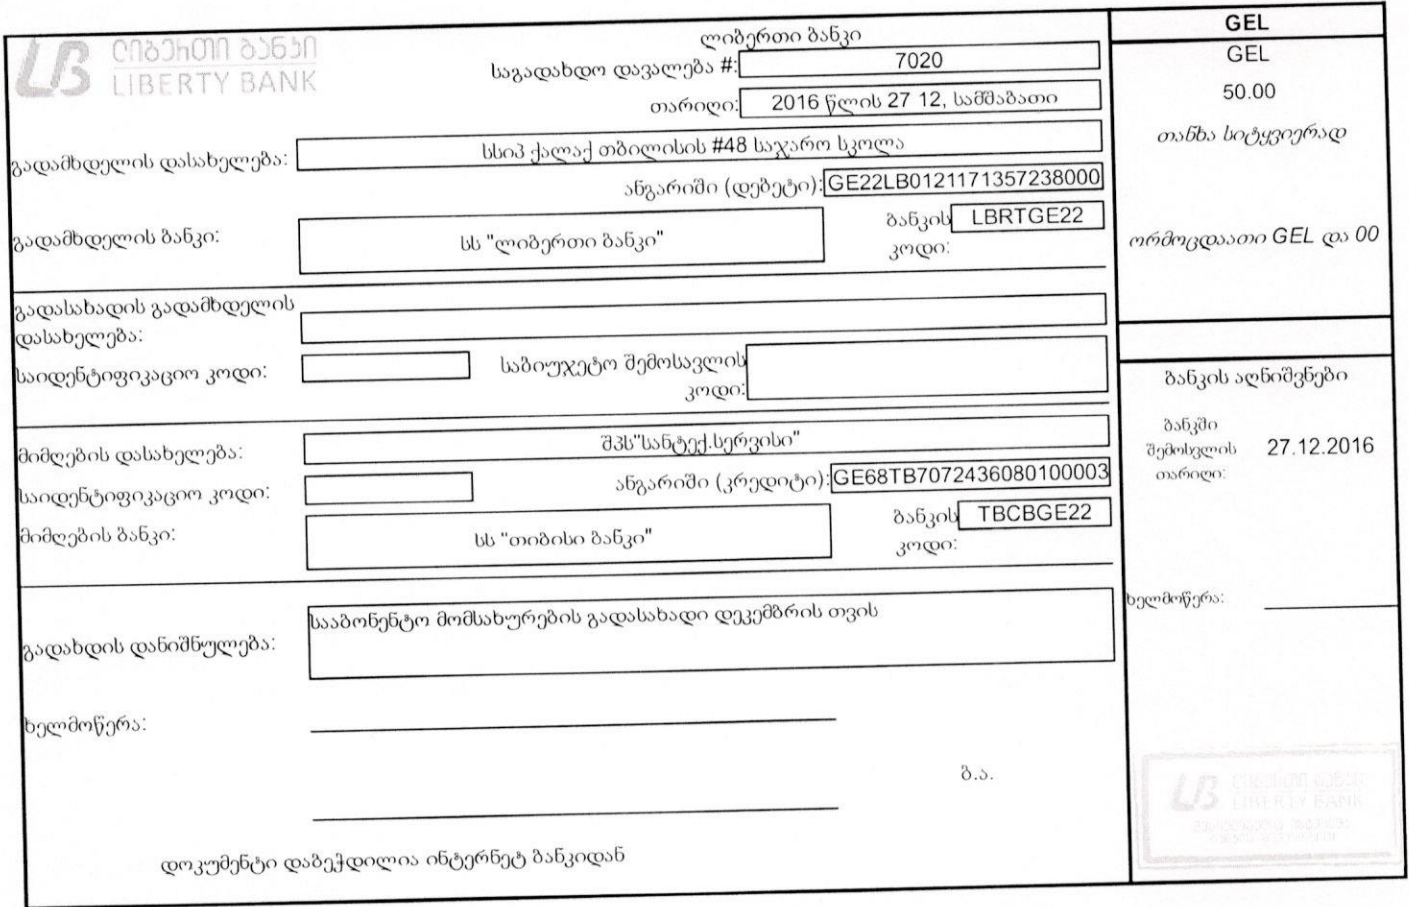 ლიბერთი ბანკი
LIBERTY BANK
ლიბერთი ბანკი
საგადახდო დავალება #: 7020
თარიღი: 2016 წლის 27 12, სამშაბათი
გადამხდელის დასახელება: სსიპ ქალაქ თბილისის #48 საჯარო სკოლა
ანგარიში (დებეტი): GE22LB0121171357238000
გადამხდელის ბანკი: სს "ლიბერთი ბანკი" ბანკის კოდი: LBRTGE22
გადასახადის გადამხდელის
დასახელება:
საიდენტიფიკაციო კოდი: საბიუჯეტო შემოსავლის
კოდი:
მიმღების დასახელება: შპს"სანტექ.სერვისი"
საიდენტიფიკაციო კოდი: ანგარიში (კრედიტი): GE68TB7072436080100003
მიმღების ბანკი: სს "თიბისი ბანკი" ბანკის კოდი: TBCBGE22
გადახდის დანიშნულება: სააბონენტო მომსახურების გადასახადი დეკემბრის თვის
ხელმოწერა:
ბ.ა.
დოკუმენტი დაბეჭდილია ინტერნეტ ბანკიდან
GEL
GEL
50.00
თანხა სიტყვიერად
ორმოცდაათი GEL და 00
ბანკის აღნიშვნები
ბანკში
შემოსვლის 27.12.2016
თარიღი:
ხელმოწერა:
ლიბერთი ბანკი
LIBERTY BANK